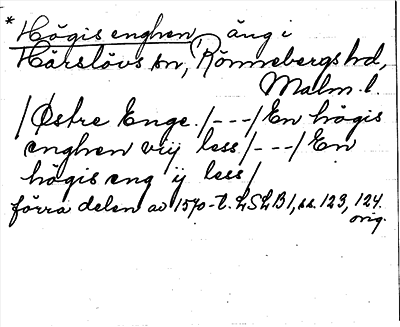 * Högis enghen, äng i
Härslövs sn, Rönnebergs hd,
Malm. l.
/Østre Enge./---/En högis
enghen viij less/---/En
högis eng ij less/
förra delen av 1570-t. LSLB 1, ss. 123, 124.
orig.